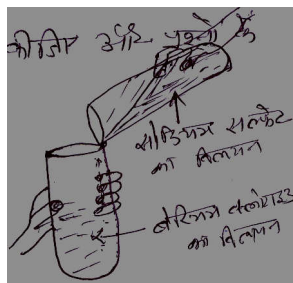 कीजिए और प्रश्नों के
सोडियम सल्फेट
का विलयन
बेरियम क्लोराइड
का विलयन